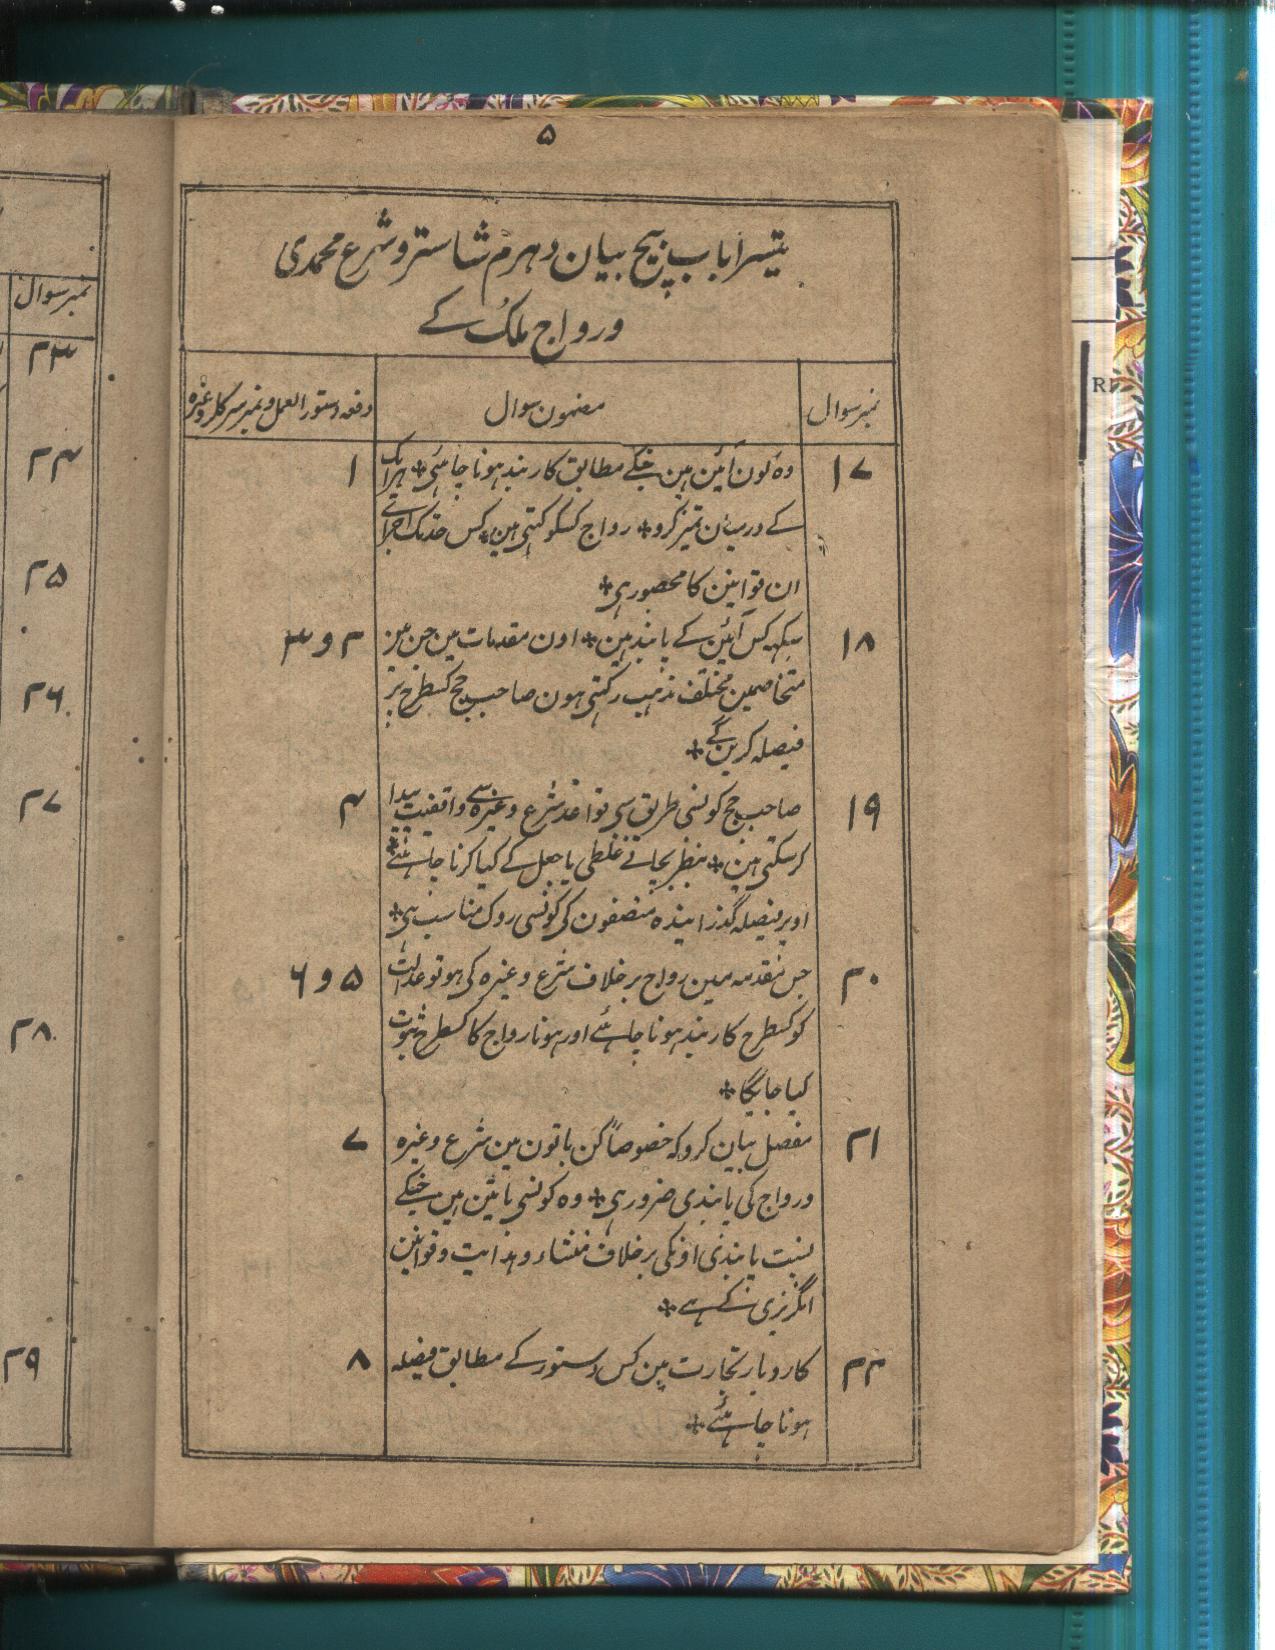 ۵
تیسرا باب بیچ بیان دہرم شاستر و شرع محمدی
و رواج ملک کے
نمبر سوال
مضمون سوال
دفعہ دستور العمل و نمبر سرکلر وغیرہ
۱۷
وہ کون آئین ہین جنکے مطابق کاربند ہونا چاہئی * ہرایک
۱
کے درمیان تمیز کرو * رواج کسکو کہتی ہین * کس حد تک اجرائے
ان قوانین کا محصور ہی *
۱۸
سکہہ کس آئین کے پابند ہین * اون مقدمات مین جن مین
۲ و ۳
متخاصمین مختلف مذہب رکہتی ہون صاحب جج کسطرح پر
فیصلہ کرین گے *
۱۹
صاحب جج کونسی طریق سی قواعد شرع وغیرہ سے واقفیت پیدا
۴
کر سکتی ہین * بنظر بچانے غلطی یا جعل کے کیا کرنا چاہئے *
اوپر فیصلہ گذرانیندہ منصفون کی کونسی روک مناسب ہی *
۲۰
جس مقدمہ مین رواج برخلاف شرع وغیرہ کی ہو تو عدالت
۵ و ۶
کو کسطرح کاربند ہونا چاہئے اور ہونا رواج کا کسطرح ثبوت
کیا جایگا *
۲۱
مفصل بیان کرو کہ خصوصاً کن باتون مین شرع وغیرہ
۷
و رواج کی پابندی ضرور ہی * وہ کونسی باتین ہین جنکے
نسبت پابندی اونکی برخلاف منشاء و ہدایت و قوانین
انگریزی کے ہے *
۲۲
کاروبار تجارت مین کس دستور کے مطابق فیصلہ
۸
ہونا چاہئے *
نمبر سوال
۲۳
۲۴
۲۵
۲۶
۲۷
۲۸
۲۹